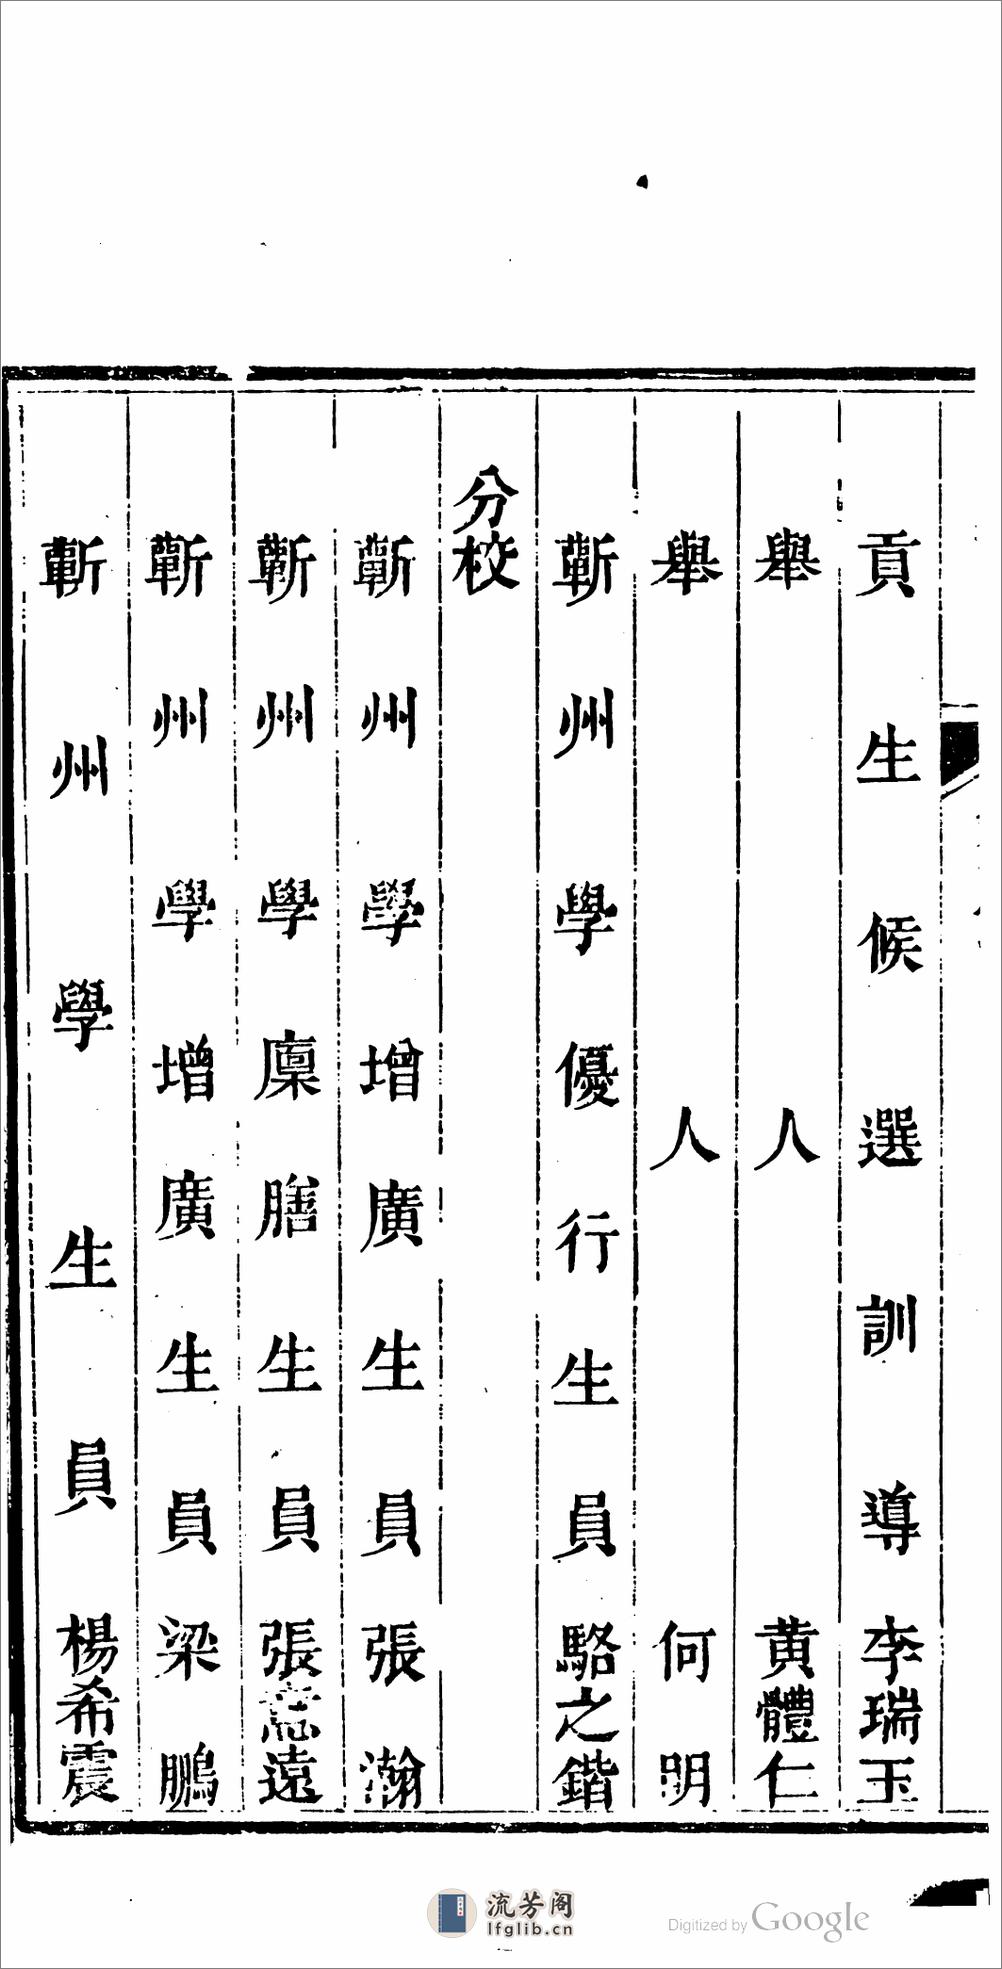 貢生候選訓導李瑞玉
舉人黄體仁
舉人何明
蘄州學優行生員駱之鍇
分校
蘄州學增廣生員張瀚
蘄州學廩膳生員張意遠
蘄州學增廣生員梁鵬
蘄州學生員楊希震
流芳阁
lfglib.cn
Digitized by Google